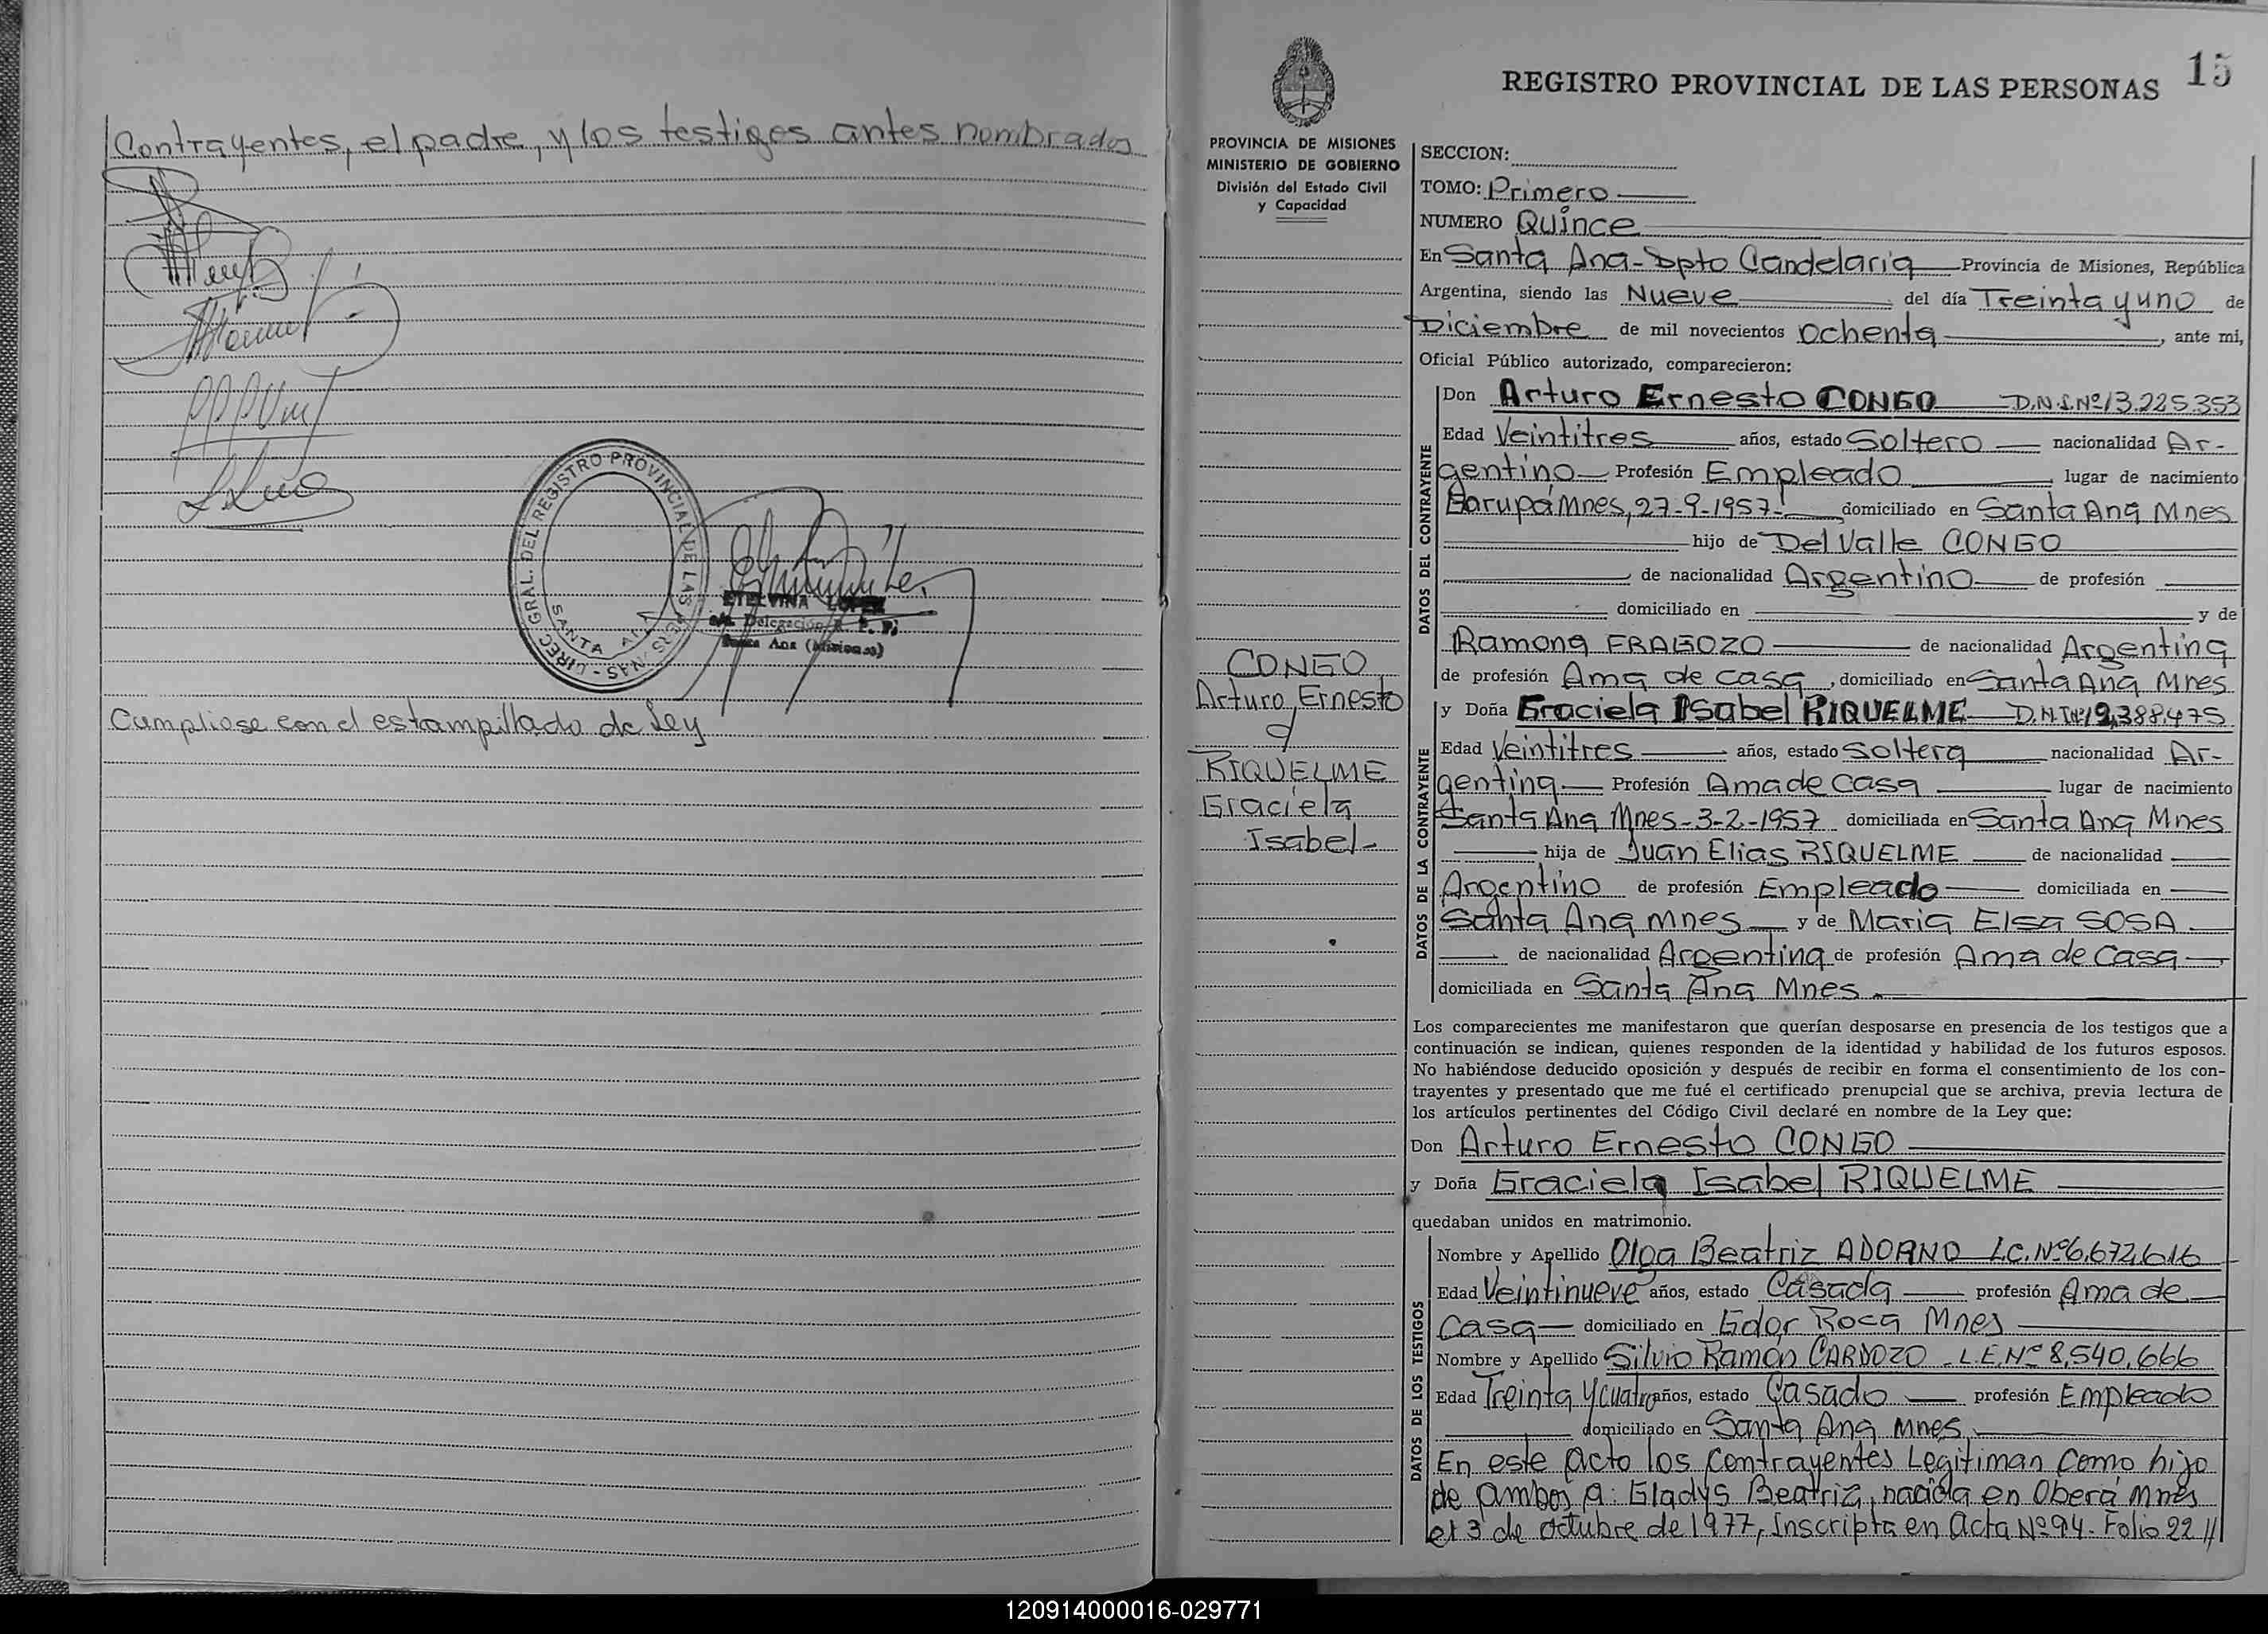 Contrayentes, el padre, y los testigos antes nombrados
DIREC. GRAL. DEL REGISTRO PROVINCIAL DE LAS PERSONAS
SANTA ANA
ETELVINA LOPEZ
Delegación R. P. P.
Santa Ana (Misiones)
Cumpliose con el estampillado de Ley
15
REGISTRO PROVINCIAL DE LAS PERSONAS
PROVINCIA DE MISIONES
MINISTERIO DE GOBIERNO
División del Estado Civil
y Capacidad
CONGO
Arturo Ernesto
RIQUELME
Graciela
Isabel-
SECCION:
TOMO: Primero
NUMERO Quince
En Santa Ana-Dpto Candelaria Provincia de Misiones, República
Argentina, siendo las Nueve del día Treinta y uno de
Diciembre de mil novecientos ochenta, ante mi,
Oficial Público autorizado, comparecieron:
DATOS DEL CONTRAYENTE
Don Arturo Ernesto CONGO D.N.I.Nº13.225.353
Edad Veintitres años, estado Soltero nacionalidad Ar-
gentino Profesión Empleado, lugar de nacimiento
Garupá Mnes, 27-9-1957- domiciliado en Santa Ana Mnes
hijo de Del Valle CONGO
de nacionalidad Argentino de profesión
domiciliado en y de
Ramona FRAGOZO de nacionalidad Argentina
de profesión Ama de casa, domiciliado en Santa Ana Mnes
DATOS DE LA CONTRAYENTE
y Doña Graciela Isabel RIQUELME D.N.I.Nº12,388,475
Edad Veintitres años, estado Soltera nacionalidad Ar-
gentina Profesión Ama de Casa lugar de nacimiento
Santa Ana Mnes-3-2-1957 domiciliada en Santa Ana Mnes
hija de Juan Elias RIQUELME de nacionalidad
Argentino de profesión Empleado domiciliada en
Santa Ana Mnes y de Maria Elsa SOSA
de nacionalidad Argentina de profesión Ama de Casa
domiciliada en Santa Ana Mnes.
Los comparecientes me manifestaron que querían desposarse en presencia de los testigos que a
continuación se indican, quienes responden de la identidad y habilidad de los futuros esposos.
No habiéndose deducido oposición y después de recibir en forma el consentimiento de los con-
trayentes y presentado que me fué el certificado prenupcial que se archiva, previa lectura de
los artículos pertinentes del Código Civil declaré en nombre de la Ley que:
Don Arturo Ernesto CONGO
y Doña Graciela Isabel RIQUELME
quedaban unidos en matrimonio.
DATOS DE LOS TESTIGOS
Nombre y Apellido Olga Beatriz ADORNO L.C.Nº6,672,616
Edad Veintinueve años, estado Casada profesión Ama de
Casa domiciliado en Gdor Roca Mnes
Nombre y Apellido Silvio Ramón CARDOZO - L.E.Nº 8,540,666
Edad Treinta y cuatro años, estado Casado profesión Empleado
domiciliado en Santa Ana Mnes.
En este Acto los Contrayentes Legitiman Como hijo
de ambos a: Gladys Beatriz, nacida en Oberá Mnes
el 3 de octubre de 1977, Inscripta en Acta Nº94- Folio 22 //
120914000016-029771